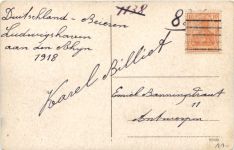 1138
8
Deutschland - Beieren
Ludwigshaven
aan den Rhyn
1918
Karel Billiet
Emiel Banningstraat
11
Antwerpen